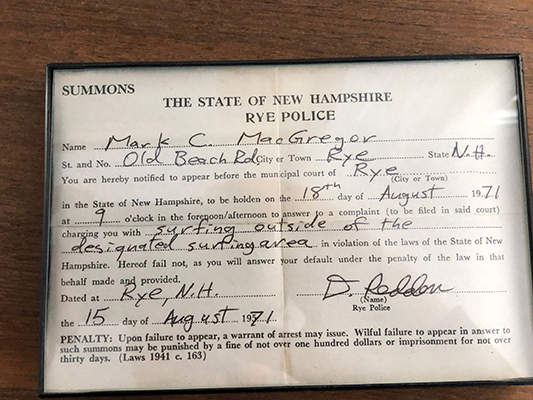 SUMMONS
THE STATE OF NEW HAMPSHIRE
RYE POLICE
Name Mark C. MacGregor
St. and No. Old Beach Rd City or Town Rye State N.H.
You are hereby notified to appear before the municipal court of Rye
(City or Town)
in the State of New Hampshire, to be holden on the 18th day of August 1971
at 9 o'clock in the forenoon/afternoon to answer to a complaint (to be filed in said court)
charging you with surfing outside of the
designated surfing area in violation of the laws of the State of New
Hampshire. Hereof fail not, as you will answer your default under the penalty of the law in that
behalf made and provided.
Dated at Rye, N.H. D. Redden
(Name)
the 15 day of August 1971 Rye Police
PENALTY: Upon failure to appear, a warrant of arrest may issue. Wilful failure to appear in answer to
such summons may be punished by a fine of not over one hundred dollars or imprisonment for not over
thirty days. (Laws 1941 c. 163)